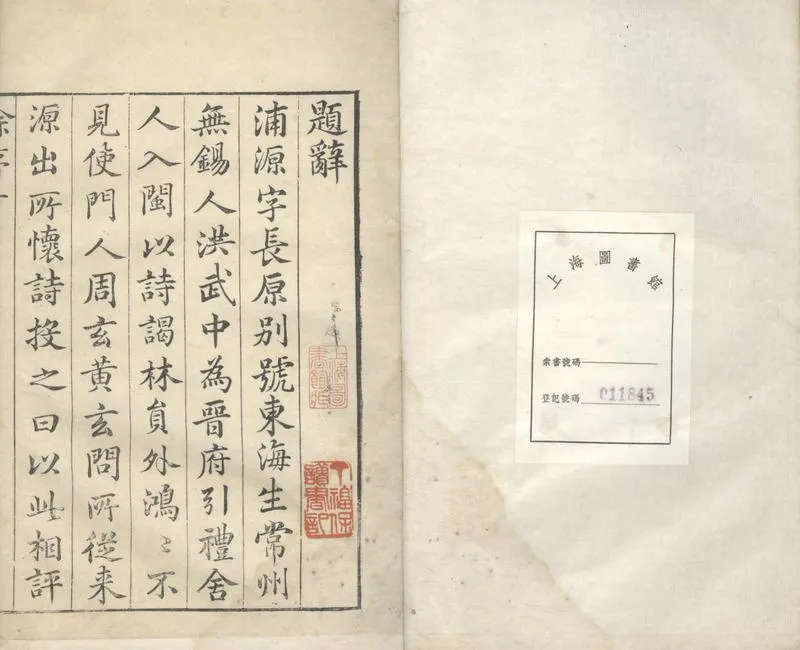 上海圖書館
索書號碼
登記號碼 011845
題辭
浦源字長原别號東海生常州
無錫人洪武中為晉府引禮舍
人入閩以詩謁林員外鴻〻不
見使門人周玄黄玄問所從来
源出所懷詩投之曰以此相評
上海圖書館藏
丁福保讀書記